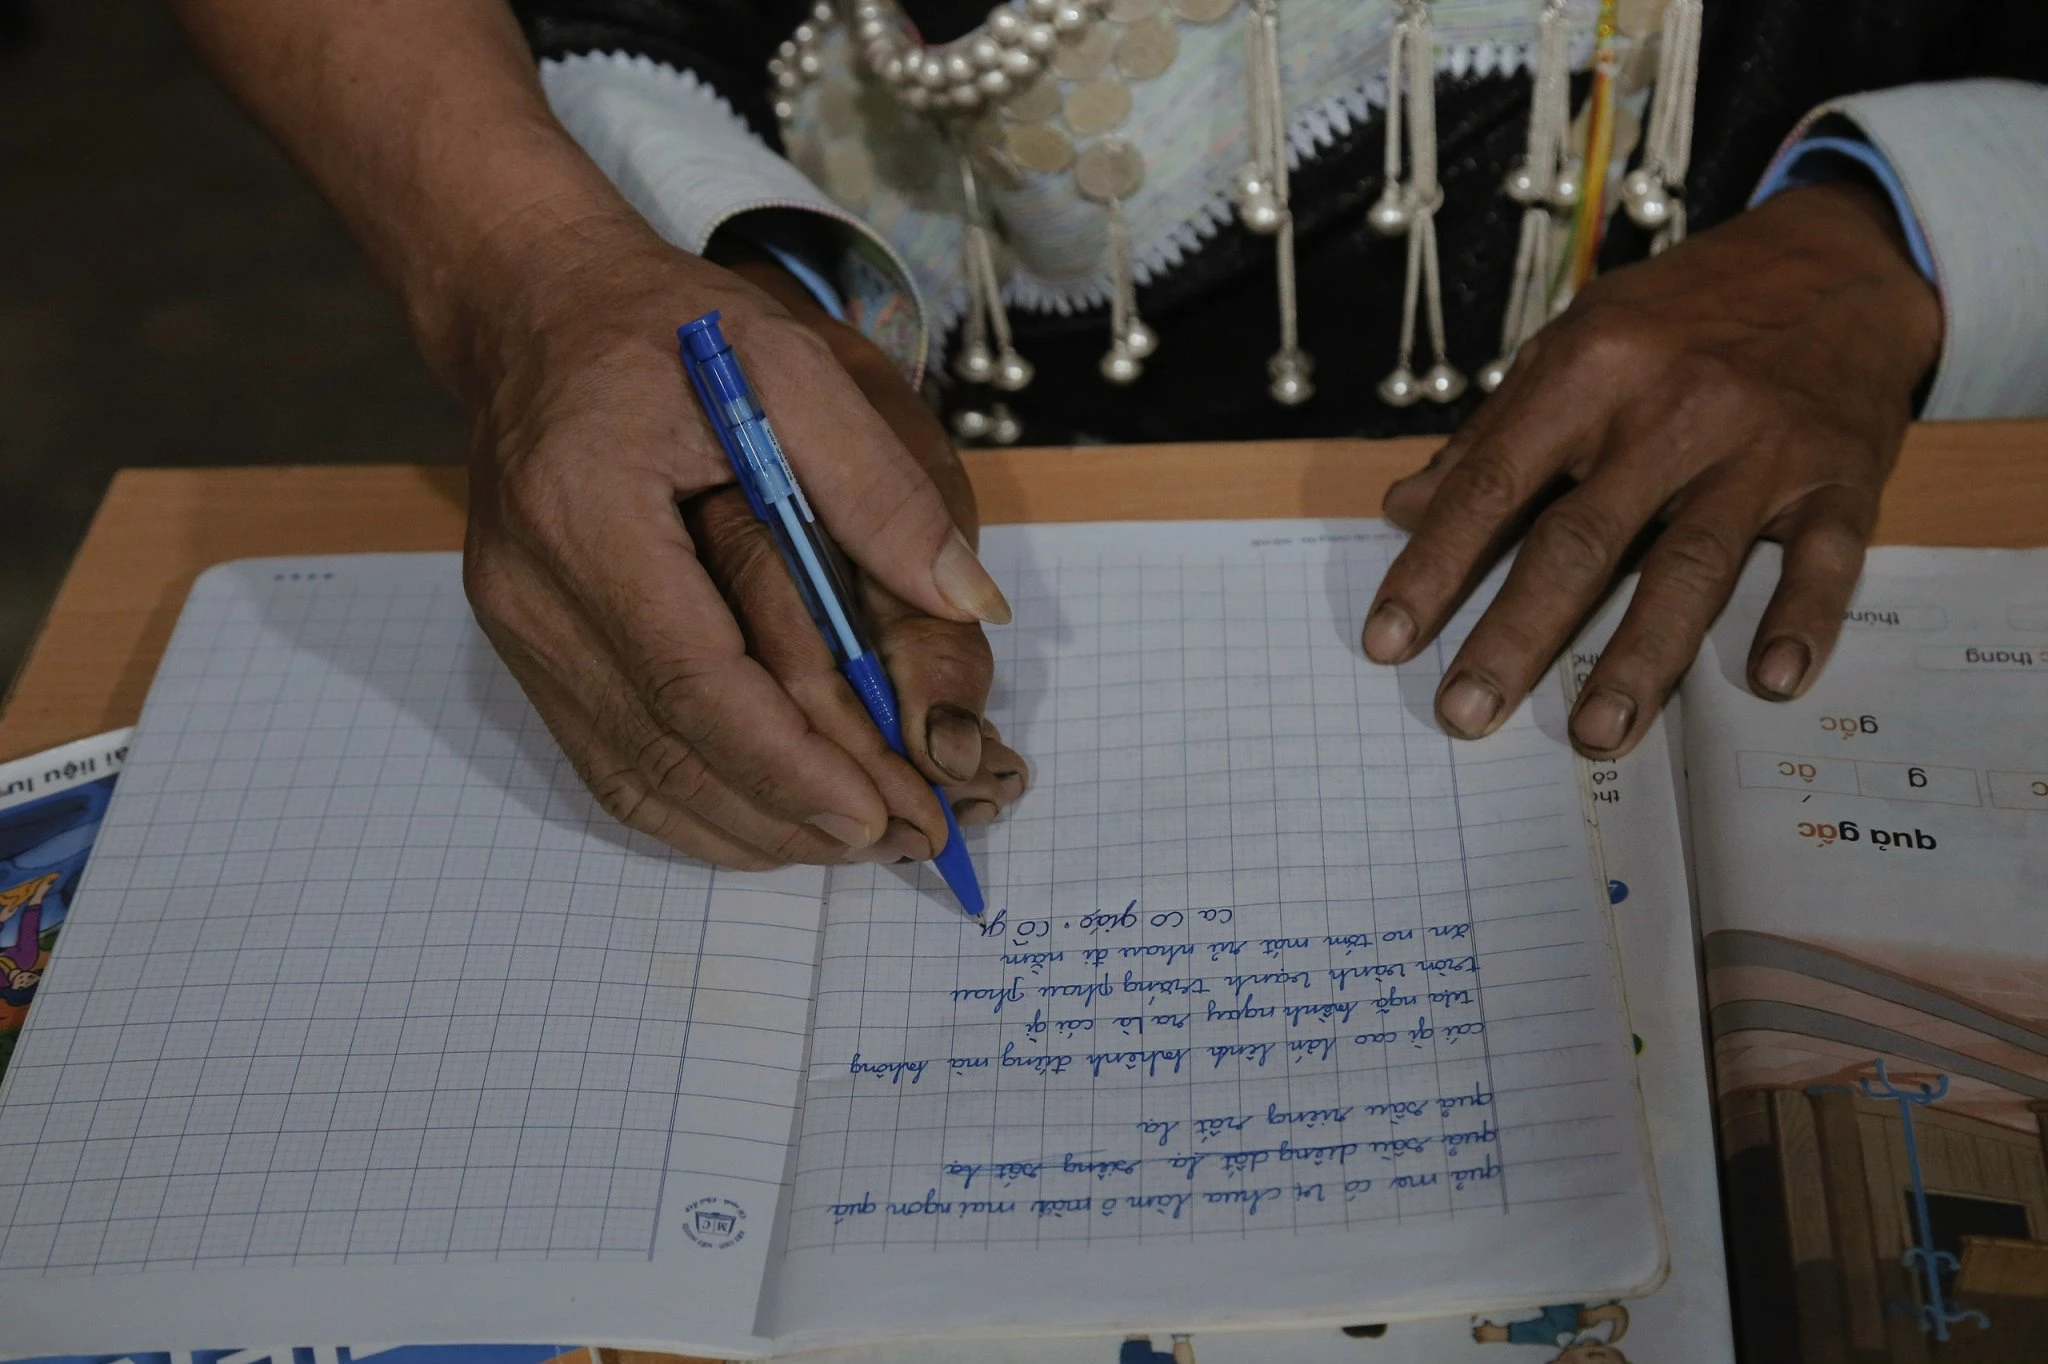 quả mơ có vị chua làm ô mai mai ngon quá
quả sầu diêng dất lạ siêng sất lạ
quả sầu riêng rất lạ
cái gì cao lớn lênh khênh đứng mà không
tựa ngã kềnh ngay ra là cái gì
tròn vành vạnh trắng phau phau
ăn no tắm mát rủ nhau đi nằm
ca cô giáo. cô g
quả gấc
g
ấc
gấc
c thang
thùng
ài liệu lư
MC